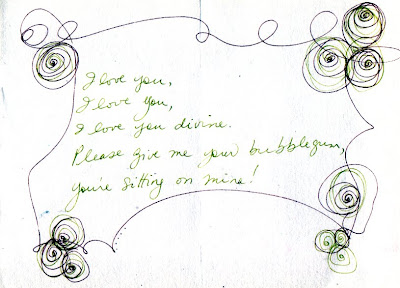 I love you,
I love you,
I love you divine.
Please give me your bubblegum,
you're sitting on mine!